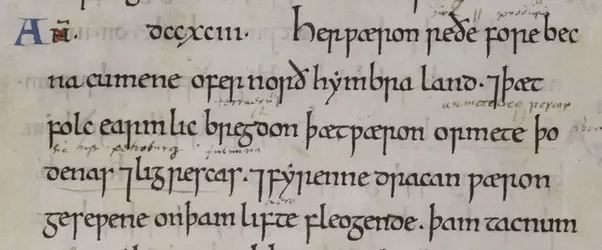 AÑ. DCCXCIII. Her ƿæron reðe forebec
na cumene ofer norðhẏmbra land. ⁊ þæt
folc earmlic bregdon þæt ƿæron ormete þo
fulmina
denas ⁊ ligrescas. ⁊ fẏrenne dracan ƿæron
geseƿene on þam lifte fleogende. þam tacnum